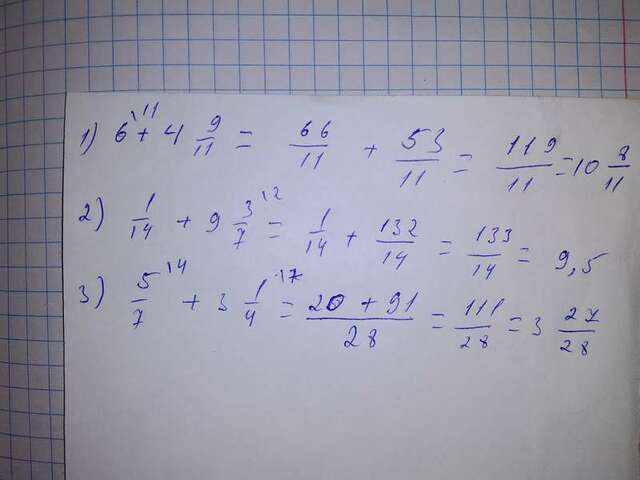 1) 6 \11 + 4 9/11 = 66/11 + 53/11 = 119/11 = 10 8/11
2) 1/14 + 9 3/7 \2 = 1/14 + 132/14 = 133/14 = 9,5
3) 5/7 \4 + 3 1/4 \7 = 20 + 91/28 = 111/28 = 3 27/28